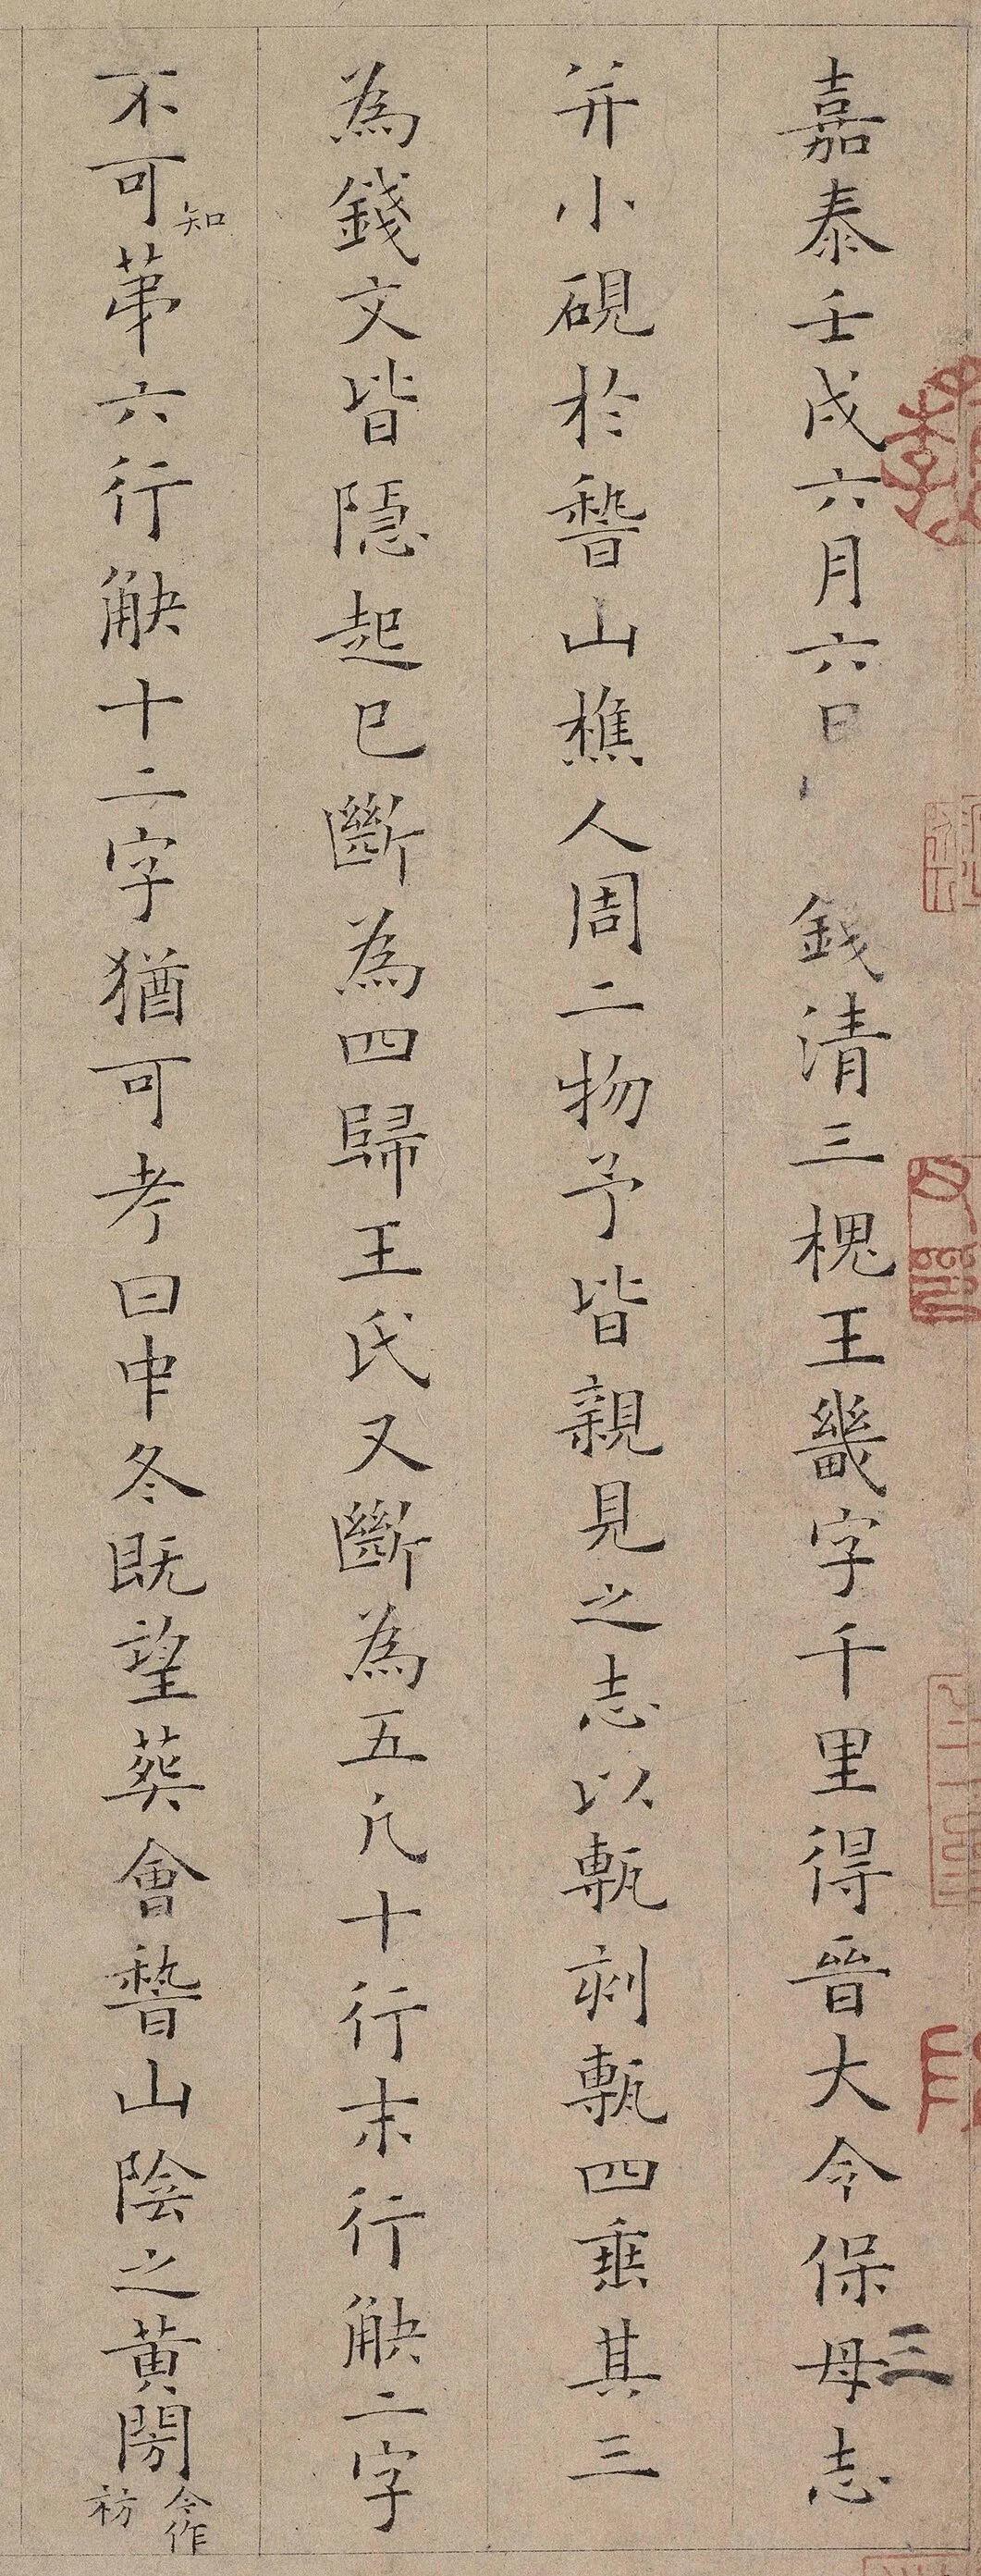 嘉泰壬戌六月六日錢清三槐王畿字千里得晉大令保母志
三
并小硯於嵆山樵人周二物予皆親見之志以甎刻甎四垂其三
為錢文皆隱起已斷為四歸王氏又斷為五凢十行末行觖二字
不可知
苐六行觖十二字猶可考曰中冬既望葬會嵆山陰之黄閍
今作
祊